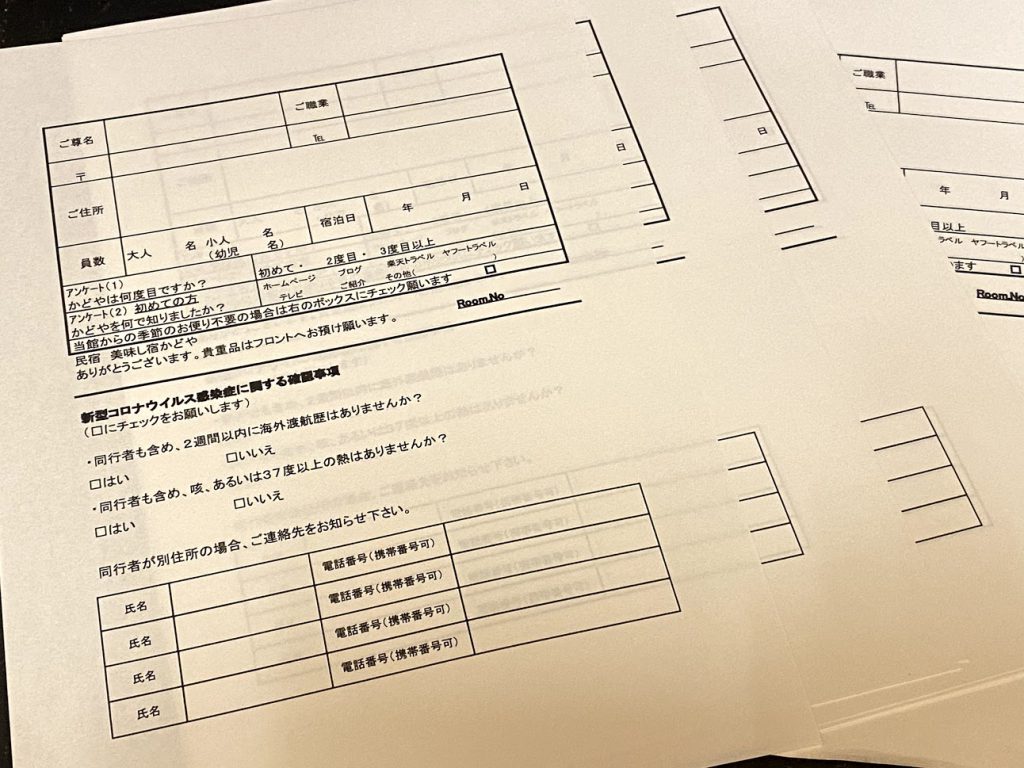 ご尊名 ご職業
〒 TEL
ご住所
員数 大人 名 小人 名 (幼児 名) 宿泊日 年 月 日
アンケート(1)
かどやは何度目ですか? 初めて・ 2度目・ 3度目以上
アンケート(2) 初めての方
かどやを何で知りましたか? ホームページ ブログ 楽天トラベル ヤフートラベル
テレビ ご紹介 その他( )
当館からの季節のお便り不要の場合は右のボックスにチェック願います □
民宿 美味し宿かどや
ありがとうございます。貴重品はフロントへお預け願います。 Room.No
新型コロナウイルス感染症に関する確認事項
(□にチェックをお願いします)
・同行者も含め、2週間以内に海外渡航歴はありませんか?
□はい □いいえ
・同行者も含め、咳、あるいは37度以上の熱はありませんか?
□はい □いいえ
同行者が別住所の場合、ご連絡先をお知らせ下さい。
氏名 電話番号(携帯番号可)
氏名 電話番号(携帯番号可)
氏名 電話番号(携帯番号可)
氏名 電話番号(携帯番号可)
日
日
ご職業
TEL
年 月
目以上
ラベル ヤフートラベル
ます □
Room.No